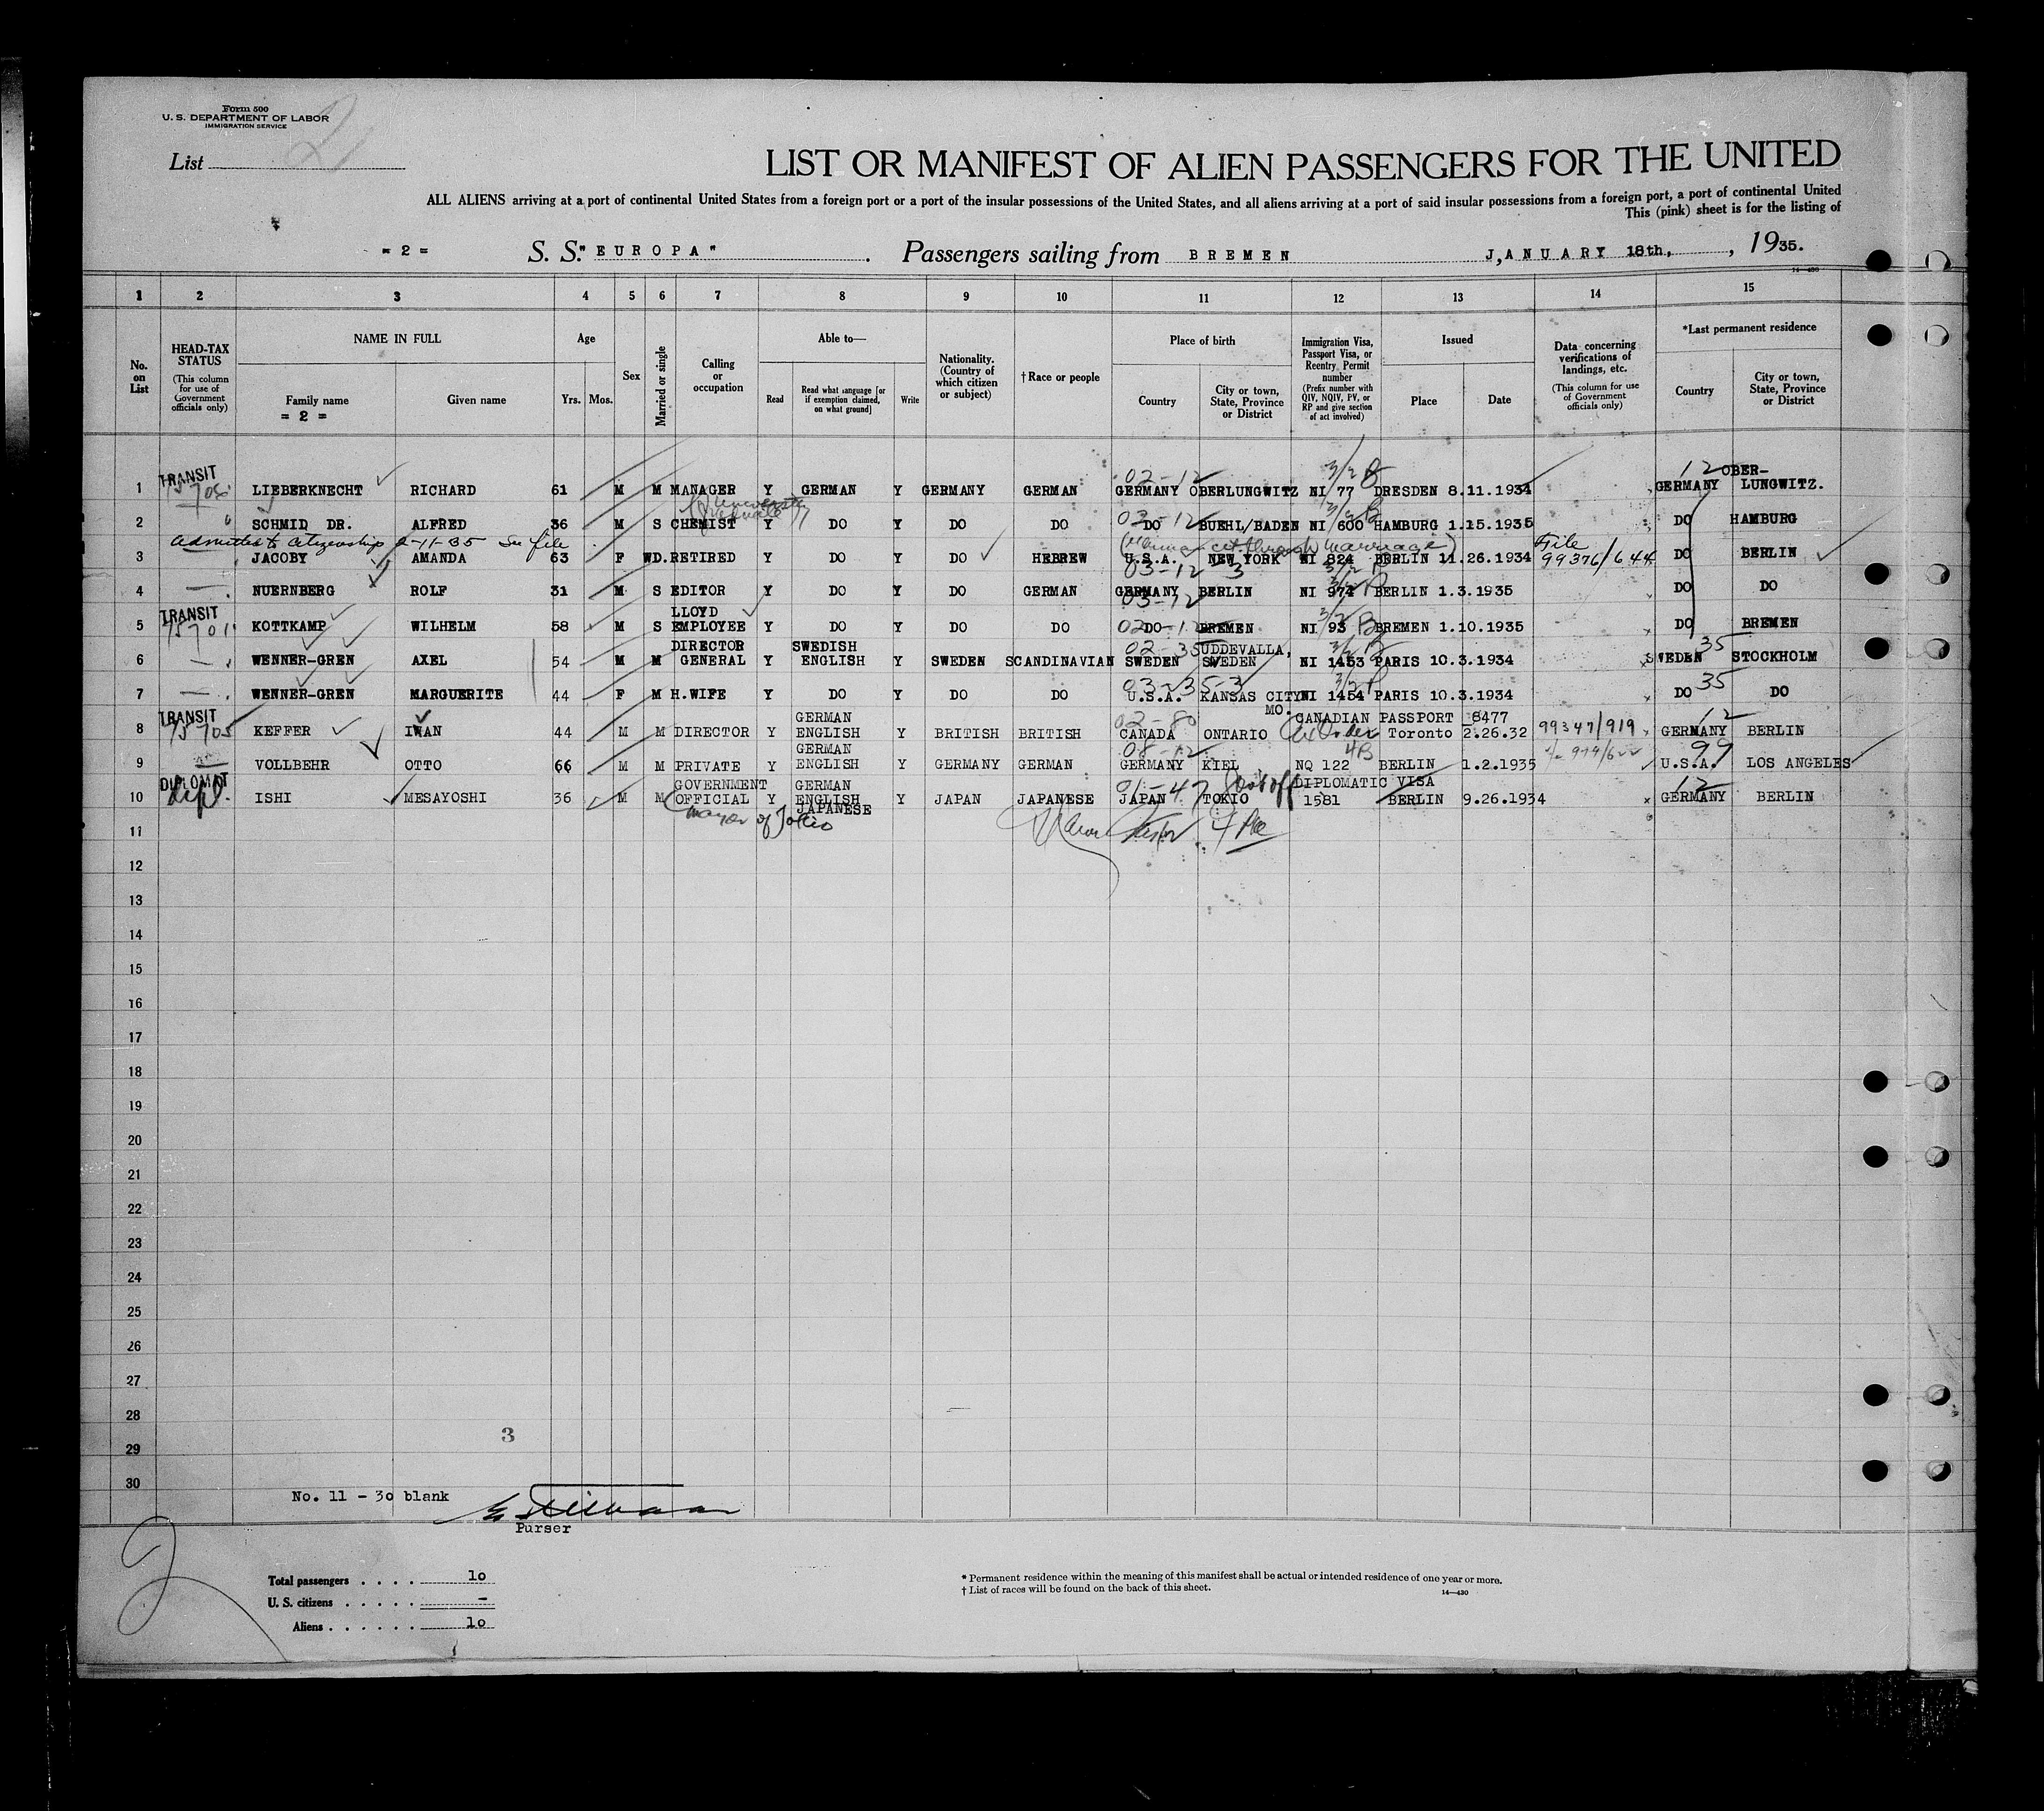 Form 500
U. S. DEPARTMENT OF LABOR
IMMIGRATION SERVICE
2
List
LIST OR MANIFEST OF ALIEN PASSENGERS FOR THE UNITED
ALL ALIENS arriving at a port of continental United States from a foreign port or a port of the insular possessions of the United States, and all aliens arriving at a port of said insular possessions from a foreign port, a port of continental United
This (pink) sheet is for the listing of
= 2 = S. S. "EUROPA" . Passengers sailing from BREMEN J,ANUARY 18th, , 1935.
14—430
1 2 3 4 5 6 7 8 9 10 11 12 13 14 15
No. on List
HEAD-TAX STATUS
(This column for use of Government officials only)
NAME IN FULL
Family name
= 2 =
Given name
Age
Yrs. Mos.
Sex
Married or single
Calling or occupation
Able to—
Read
Read what language [or if exemption claimed, on what ground]
Write
Nationality. (Country of which citizen or subject)
† Race or people
Place of birth
Country
City or town, State, Province or District
Immigration Visa, Passport Visa, or Reentry Permit number
(Prefix number with QIV, NQIV, PV, or RP and give section of act involved)
Issued
Place
Date
Data concerning verifications of landings, etc.
(This column for use of Government officials only)
*Last permanent residence
Country
City or town, State, Province or District
TRANSIT 02-12 3/2 B 12 OBER-
1 LIEBERKNECHT RICHARD 61 M M MANAGER Y GERMAN Y GERMANY GERMAN GERMANY OBERLUNGWITZ NI 77 DRESDEN 8.11.1934 GERMANY LUNGWITZ.
University graduate
2 SCHMID DR. ALFRED 36 M S CHEMIST Y DO Y DO DO DO BUEHL/BADEN NI 600 HAMBURG 1.15.1935 DO HAMBURG
Admitted to citizenship 2-11-35 See file
through marriage) File
3 JACOBY AMANDA 63 F WD. RETIRED Y DO Y DO HEBREW U.S.A. NEW YORK NI 824 BERLIN 11.26.1934 99376/644 DO BERLIN
03-12-3
4 NUERNBERG ROLF 31 M S EDITOR Y DO Y DO GERMAN GERMANY BERLIN NI 974 BERLIN 1.3.1935 DO DO
TRANSIT LLOYD 03-12
5 KOTTKAMP WILHELM 58 M S EMPLOYEE Y DO Y DO DO DO BREMEN NI 93 BREMEN 1.10.1935 DO BREMEN
DIRECTOR SWEDISH 02-35 UDDEVALLA, 35
6 WENNER-GREN AXEL 54 M M GENERAL Y ENGLISH Y SWEDEN SCANDINAVIAN SWEDEN SWEDEN NI 1453 PARIS 10.3.1934 SWEDEN STOCKHOLM
03-35-3 35
7 WENNER-GREN MARGUERITE 44 F M H.WIFE Y DO Y DO DO U.S.A. KANSAS CITY NI 1454 PARIS 10.3.1934 DO DO
MO.
TRANSIT GERMAN 02-80 CANADIAN PASSPORT 6477 12
8 KEFFER IWAN 44 M M DIRECTOR Y ENGLISH Y BRITISH BRITISH CANADA ONTARIO Toronto 2.26.32 99347/919 GERMANY BERLIN
GERMAN 08-12 4B 99
9 VOLLBEHR OTTO 66 M M PRIVATE Y ENGLISH Y GERMANY GERMAN GERMANY KIEL NQ 122 BERLIN 1.2.1935 U.S.A. LOS ANGELES
DIPLOMAT GOVERNMENT GERMAN 01-47 DIPLOMATIC VISA 12
10 dipl. ISHI MESAYOSHI 36 M M OFFICIAL Y ENGLISH Y JAPAN JAPANESE JAPAN TOKIO 1581 BERLIN 9.26.1934 GERMANY BERLIN
JAPANESE
mayor of Tokio
11
12
13
14
15
16
17
18
19
20
21
22
23
24
25
26
27
28
29
30
3
No. 11 - 30 blank
Purser
2
Total passengers . . . . 10
U. S. citizens . . . . . -
Aliens . . . . . . 10
* Permanent residence within the meaning of this manifest shall be actual or intended residence of one year or more.
† List of races will be found on the back of this sheet.
14—430